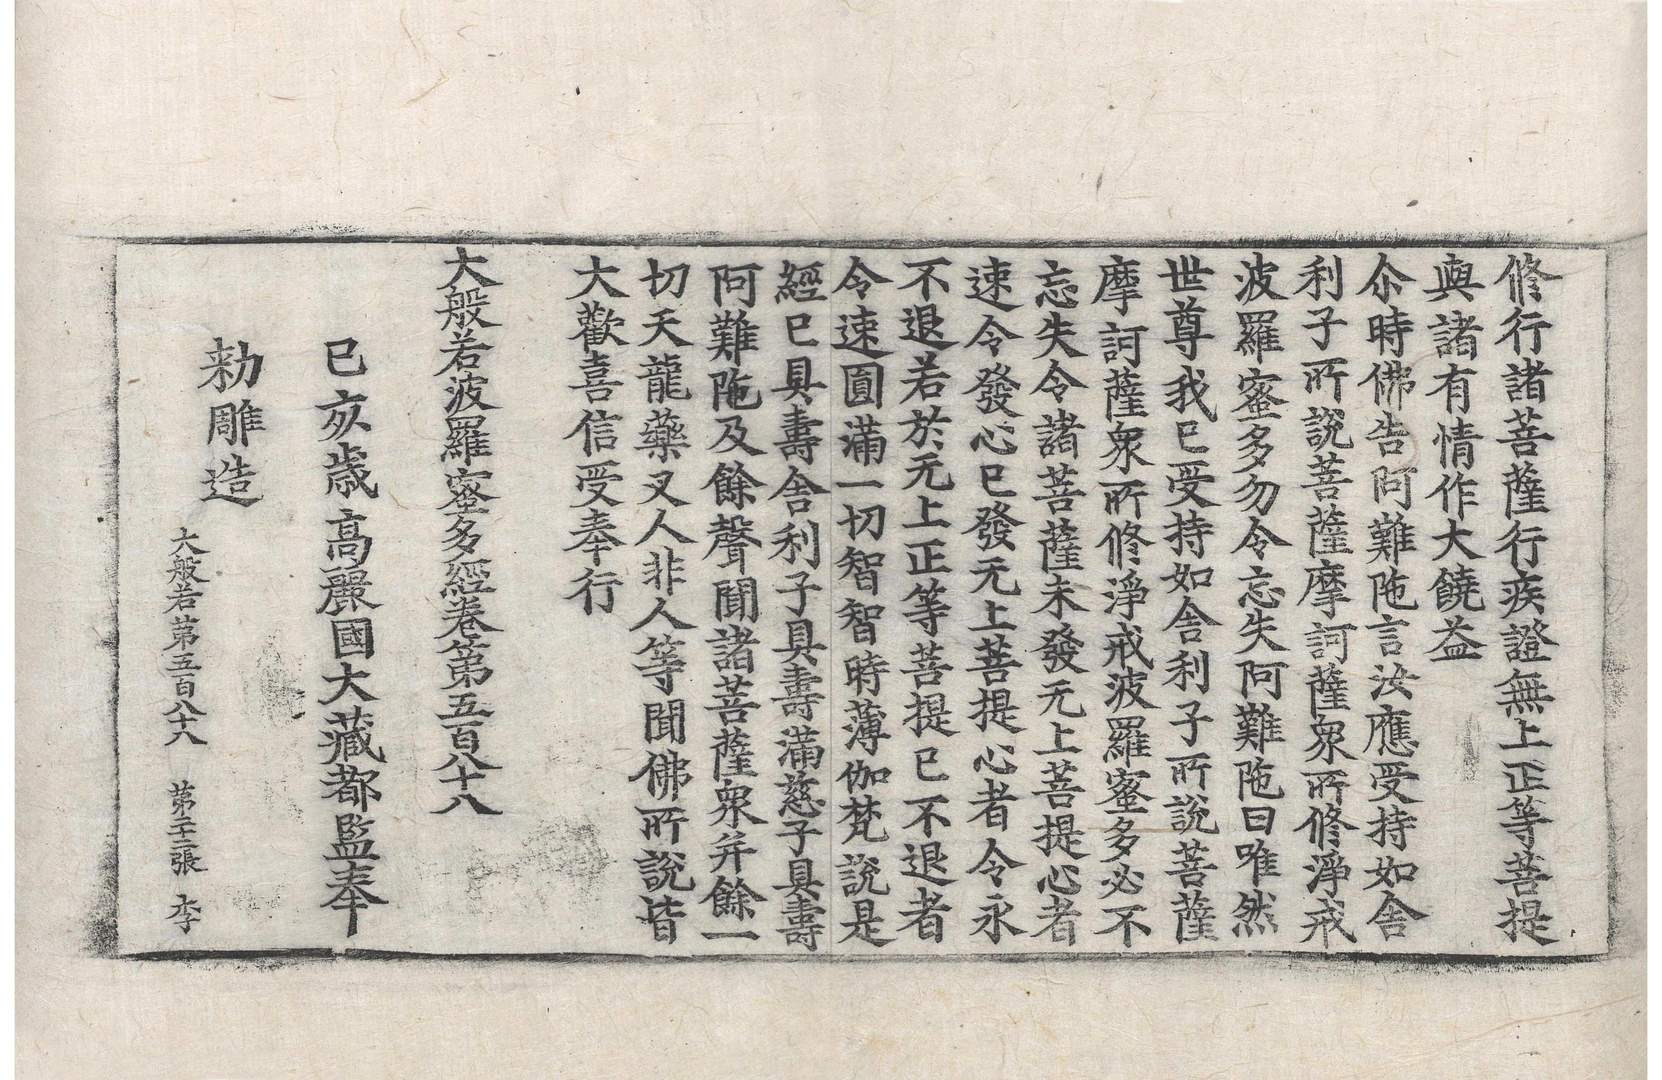 修行諸菩薩行疾證無上正等菩提
與諸有情作大饒益
尒時佛告阿難陁言汝應受持如舍
利子所說菩薩摩訶薩衆所修淨戒
波羅蜜多勿令忘失阿難陁曰唯然
世尊我已受持如舍利子所說菩薩
摩訶薩衆所修淨戒波羅蜜多必不
忘失令諸菩薩未發无上菩提心者
速令發心已發无上菩提心者令永
不退若於无上正等菩提已不退者
令速圓滿一切智智時薄伽梵說是
經已具壽舍利子具壽滿慈子具壽
阿難陁及餘聲聞諸菩薩衆并餘一
切天龍藥叉人非人等聞佛所說皆
大歡喜信受奉行
大般若波羅蜜多經卷第五百八十八
己亥歲高麗國大藏都監奉
勑雕造
大般若第五百八十八 第二十三張 李